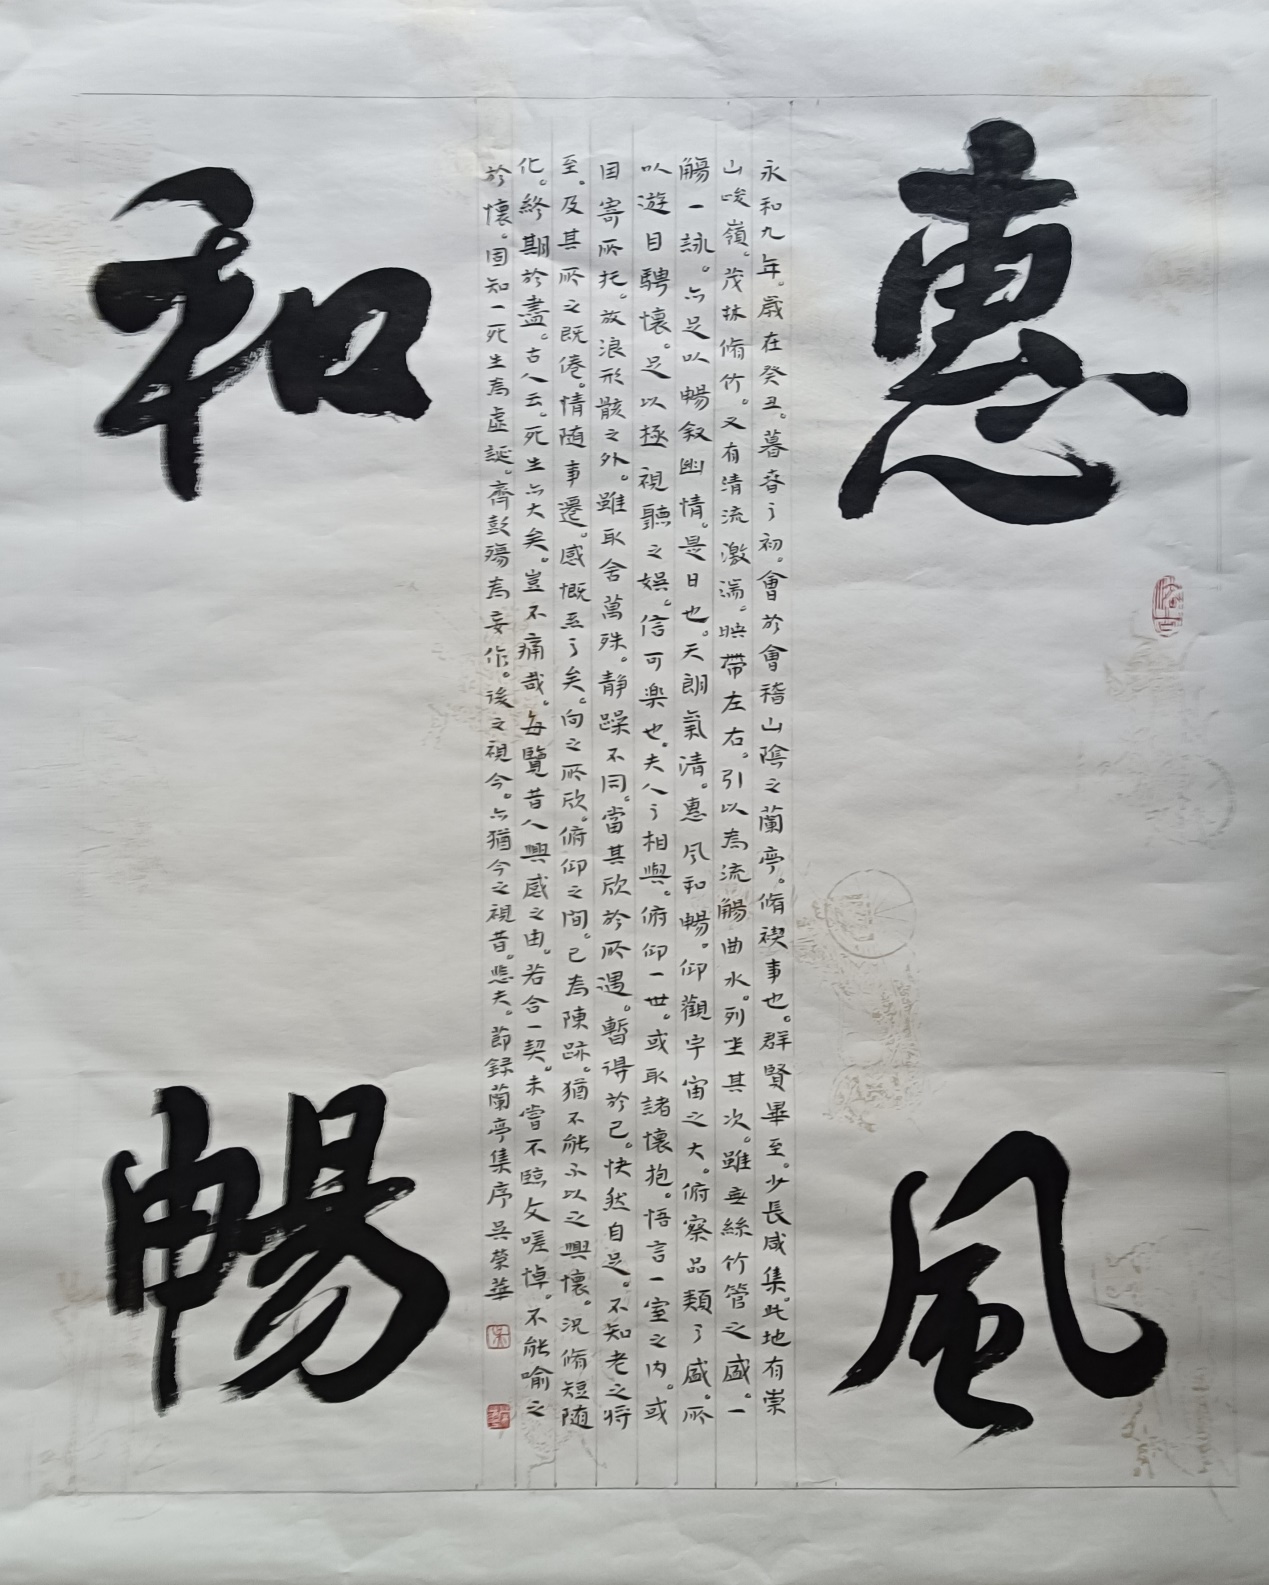 惠風
和暢
永和九年。歲在癸丑。暮春之初。會於會稽山陰之蘭亭。脩禊事也。群賢畢至。少長咸集。此地有崇
山峻嶺。茂林脩竹。又有清流激湍。映帶左右。引以為流觴曲水。列坐其次。雖無絲竹管之盛。一
觴一詠。亦足以暢敘幽情。是日也。天朗氣清。惠風和暢。仰觀宇宙之大。俯察品類之盛。所
以遊目騁懷。足以極視聽之娛。信可楽也。夫人之相與。俯仰一世。或取諸懷抱。悟言一室之内。或
因寄所托。放浪形骸之外。雖取舍萬殊。静躁不同。當其欣於所遇。暫得於己。快然自足。不知老之将
至。及其所之既倦。情随事遷。感慨系之矣。向之所欣。俯仰之間。已為陳跡。猶不能不以之興懷。況脩短随
化。終期於盡。古人云。死生亦大矣。豈不痛哉。每覽昔人興感之由。若合一契。未嘗不臨文嗟悼。不能喻之
於懷。固知一死生為虛誕。齊彭殤為妄作。後之視今。亦猶今之視昔。悲夫。節録蘭亭集序 吳榮華